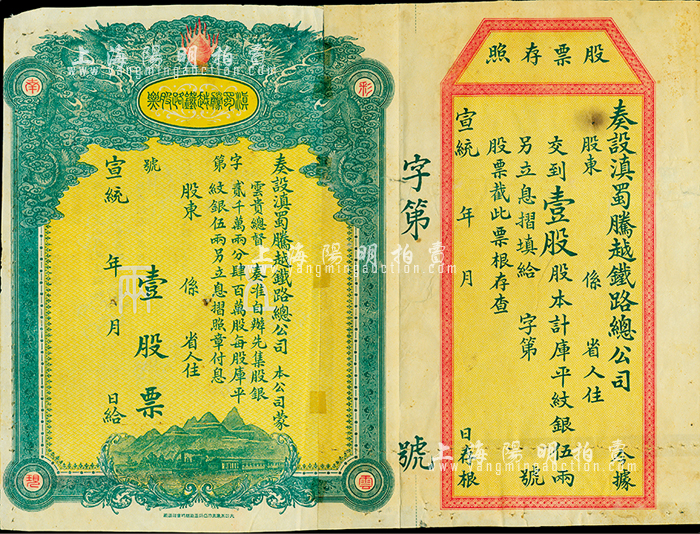 股票存照
奏設滇蜀騰越鐵路總公司 今據
股東 係 省人住
交到壹股股本計庫平紋銀伍兩
另立息摺填給 字第 號
股票截此票根存查
宣統 年 月 日存根
字第 號
滇蜀騰越鐵路股票
彩
雲
南
現
奏設滇蜀騰越鐵路總公司 本公司蒙
雲貴總督 奏准自辦先集股銀
貳千萬兩分肆百萬股每股庫平
紋銀伍兩另立息摺照章付息
字第 號
股東 係 省人住
壹股票
宣統 年 月 日給
上海陽明拍賣
yangmingauction.com
上海陽明拍賣
www.yangmingauction.com
上海陽明拍賣
www.yangmingauction.com